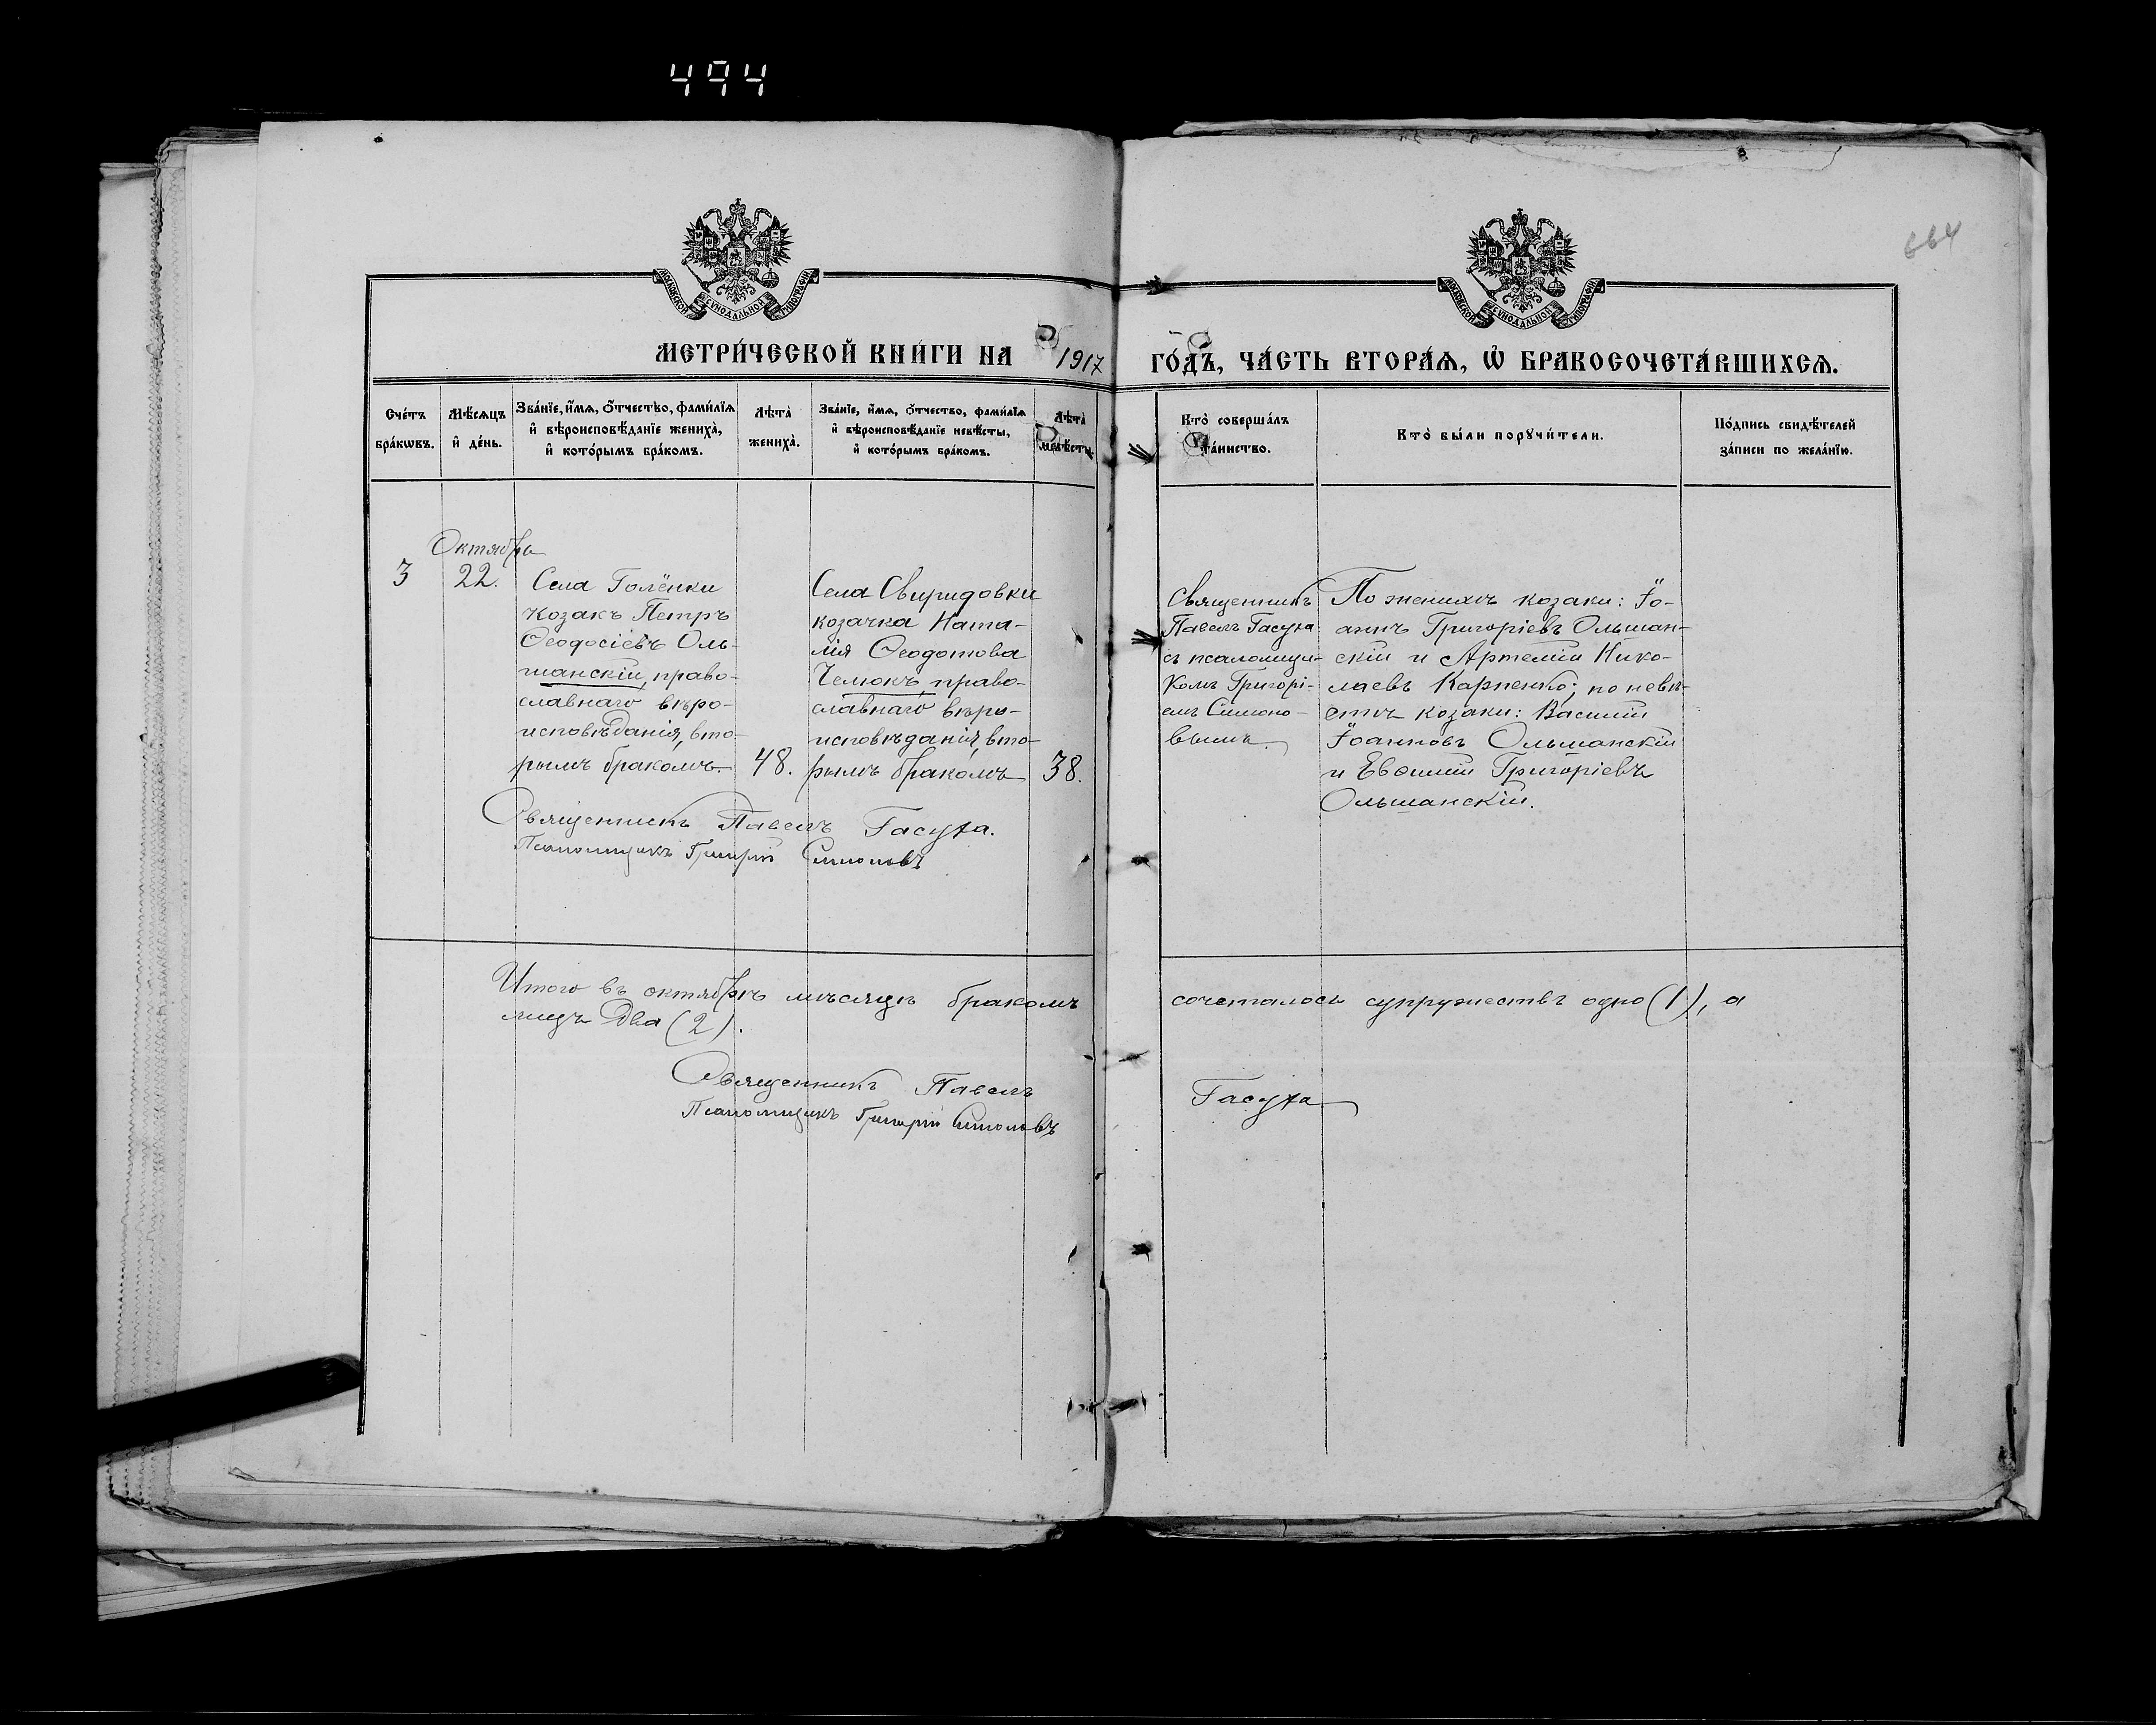 494
664
МОСКОВСКОЙ СѴНОДАЛЬНОЙ ТИПОГРАФІИ
МОСКОВСКОЙ СѴНОДАЛЬНОЙ ТИПОГРАФІИ
МЕТРИ́ЧЕСКОЙ КНИ́ГИ НА 1917 ГО́ДЪ, ЧА́СТЬ ВТОРА́Ѧ, Ѡ БРАКОСОЧЕТА́ВШИХСѦ.
Сче́тъ
бра́кѡвъ.
Мѣ́сѧцъ
и҆ де́нь.
Зва́нїе, и҆́мѧ, о҆́тчество, фами́лїѧ
и҆ вѣроисповѣ́данїе жениха̀,
и҆ кото́рымъ бра́комъ.
Лѣ́та̀
жениха̀.
Зва́нїе, и҆́мѧ, о҆́тчество, фами́лїѧ
и҆ вѣроисповѣ́данїе невѣ́сты,
и҆ кото́рымъ бра́комъ.
Лѣ́та̀
невѣ́сты.
Кто̀ соверша́лъ
та́инство.
Кто̀ бы́ли порꙋчи́тели.
По́дпись свидѣ́телей
за́писи по жела́нїю.
Октября
3
22.
Села Голёнки
козакъ Петръ
Ѳеодосіевъ Оль-
шанскій, право-
славнаго вѣро-
исповѣданія, вто-
рымъ бракомъ.
48.
Села Свиридовки
козачка Ната-
лія Ѳеодотова
Челюкъ, право-
славнаго вѣро-
исповѣданія, вто-
рымъ бракомъ
38.
Священникъ
Павелъ Гасуха
съ псаломщи-
комъ Григорі-
емъ Симоно-
вымъ.
По женихѣ козаки: Іо-
аннъ Григоріевъ Ольшан-
скій и Артемій Нико-
лаевъ Карпенко; по невѣ-
стѣ козаки: Василій
Іоанновъ Ольшанскій
и Евѳимій Григоріевъ
Ольшанскій.
Священникъ Павелъ Гасуха.
Псаломщикъ Григорій Симоновъ
Итого въ октябрѣ мѣсяцѣ бракомъ сочеталось супружествъ одно (1), а
лицъ два (2).
Священникъ Павелъ Гасуха
Псаломщикъ Григорій Симоновъ